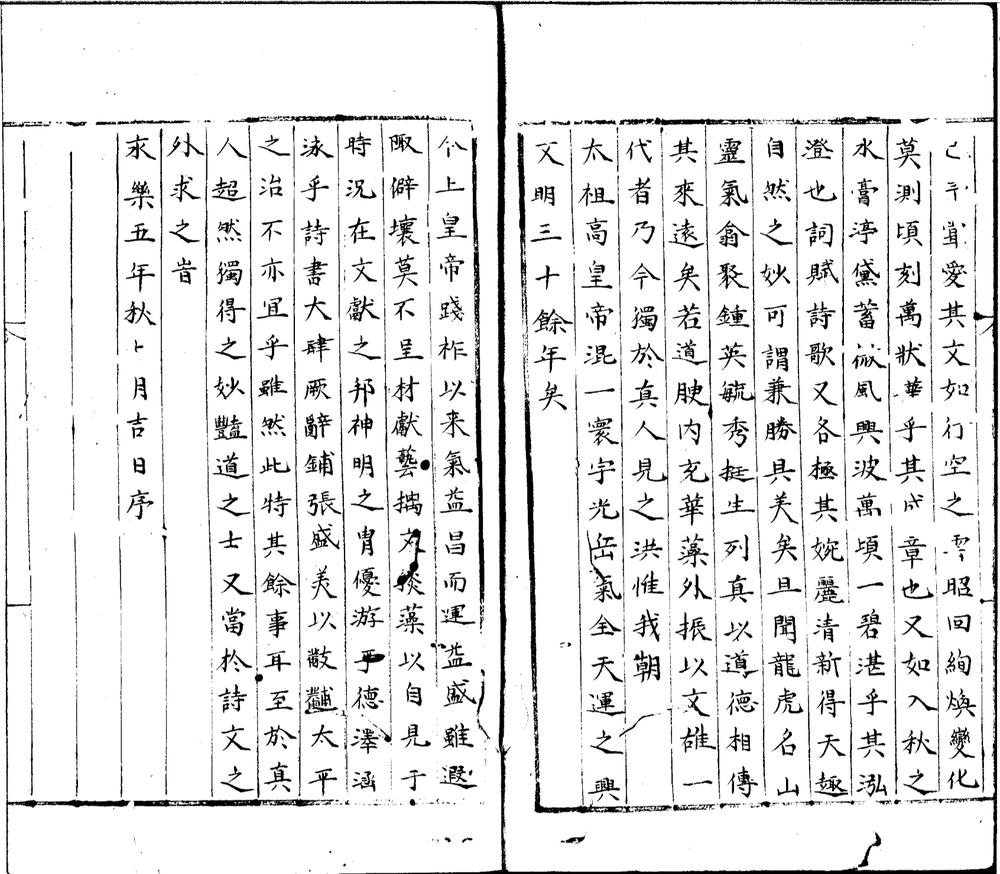 愛其文如行空之雲昭回絢煥變化
莫測頃刻萬狀華乎其成章也又如入秋之
水膏渟黛蓄微風興波萬頃一碧湛乎其泓
澄也詞賦詩歌又各極其婉麗清新得天趣
自然之妙可謂兼勝具美矣且聞龍虎名山
靈氣翕聚鍾英毓秀挺生列真以道德相傳
其來遠矣若道腴內充華藻外振以文雄一
代者乃今獨於真人見之洪惟我朝
太祖高皇帝混一寰宇光岳氣全天運之興
文明三十餘年矣
今上皇帝踐祚以來氣益昌而運益盛雖遐
陬僻壤莫不呈材獻藝摛文掞藻以自見于
時況在文獻之邦神明之胄優游乎德澤涵
泳乎詩書大肆厥辭鋪張盛美以黼黻太平
之治不亦宜乎雖然此特其餘事耳至於真
人超然獨得之妙豔道之士又當於詩文之
外求之旹
永樂五年秋七月吉日序